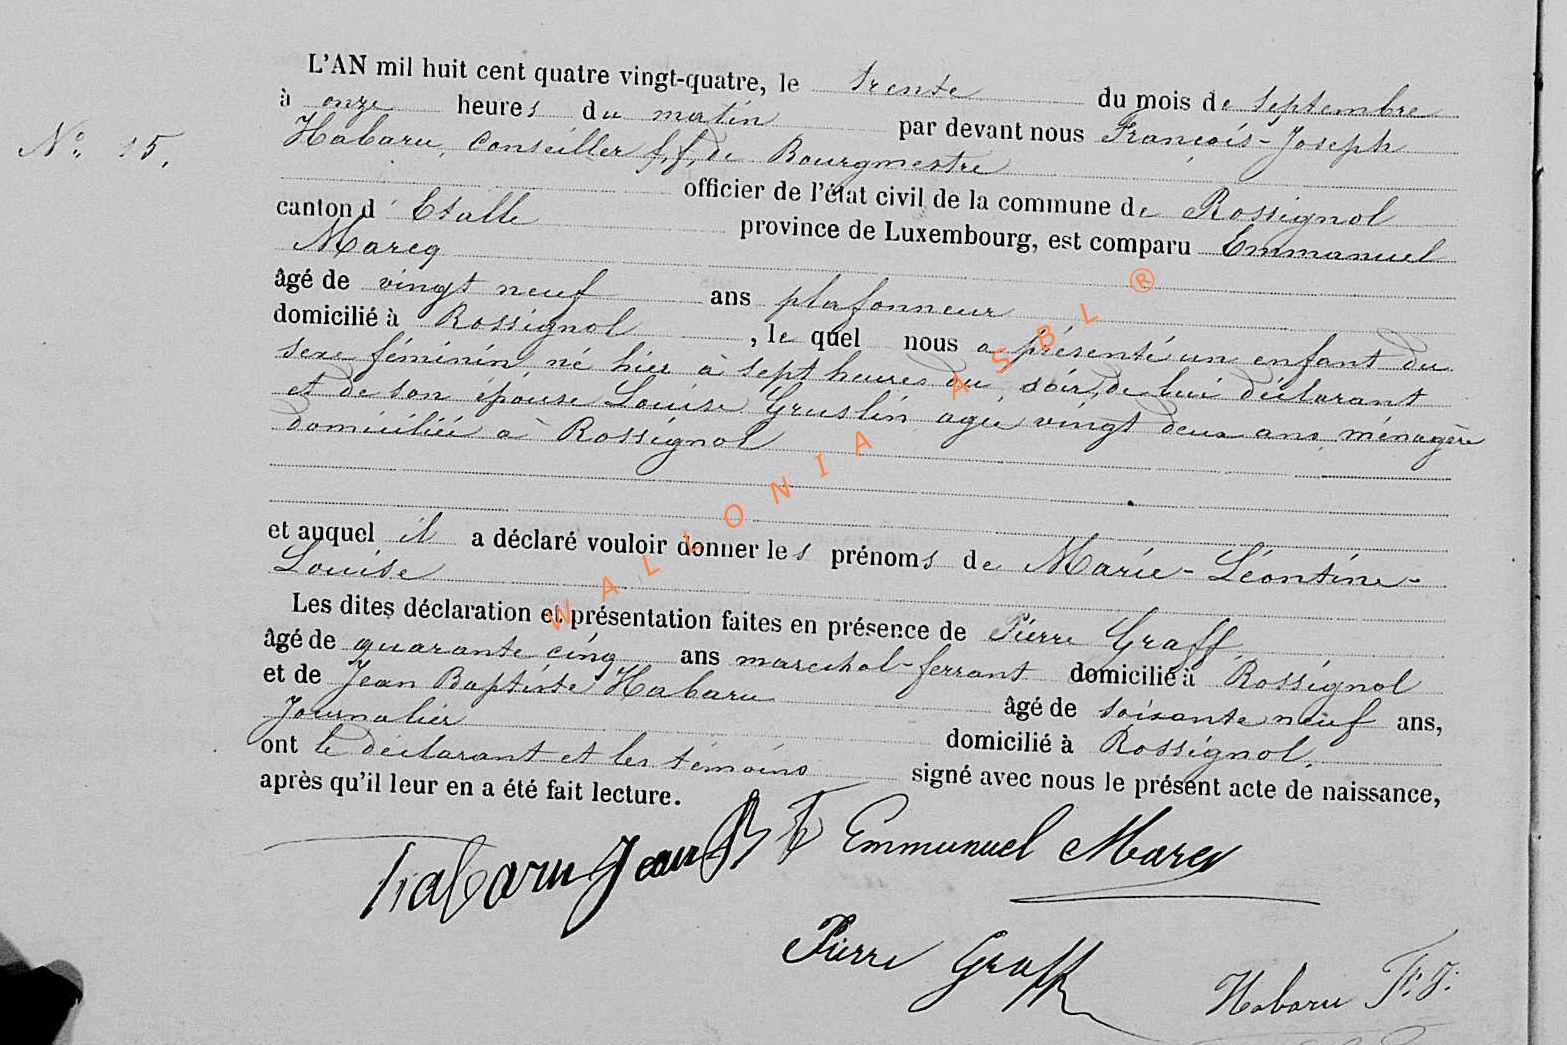 L'AN mil huit cent quatre vingt-quatre, le trente du mois de septembre
à onze heures du matin par devant nous François-Joseph
N° 15.
Habaru, Conseiller f,f, de Bourgmestre
officier de l'état civil de la commune de Rossignol
canton d' Etalle province de Luxembourg, est comparu Emmanuel
Marcq
âgé de vingt neuf ans plafonneur
domicilié à Rossignol , le quel nous a présenté un enfant du
sexe féminin né hier à sept heures du soir, de lui déclarant
et de son épouse Louise Gruslin agée vingt deux ans ménagère
domiciliée à Rossignol
et auquel il a déclaré vouloir donner les prénoms de Marie-Léontine-
Louise
Les dites déclaration et présentation faites en présence de Pierre Graff,
âgé de quarante cinq ans marechal-ferrant domicilié à Rossignol
et de Jean Baptiste Habaru âgé de soixante neuf ans,
Journalier domicilié à Rossignol,
ont le déclarant et les témoins signé avec nous le présent acte de naissance,
après qu'il leur en a été fait lecture.
Habaru Jean Bte Emmanuel Marcq
Pierre Graff
Habaru F. J.
WALLONIA ASBL ®